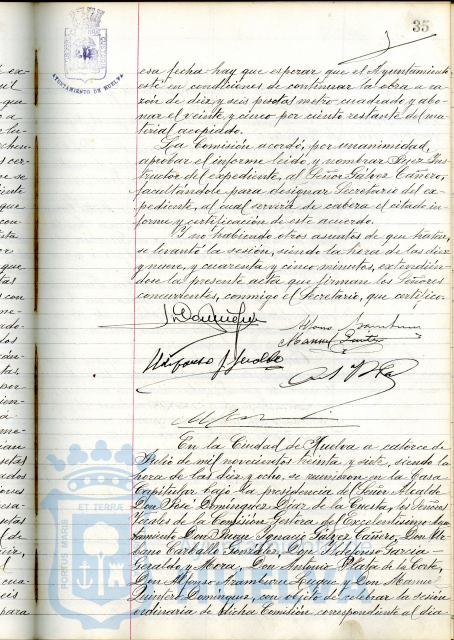 35
AYUNTAMIENTO DE HUELVA
esa fecha hay que esperar que el Ayuntamiento
esté en condiciones de continuar la obra a ra-
zón de diez y seis pesetas metro cuadrado y abo-
nar el veinte y cinco por ciento restante del ma-
terial acopiado.
La Comisión acordó, por unanimidad,
aprobar el informe leido y nombrar Juez Ins-
tructor del expediente, al Señor Gálvez Cañero,
facultándole para designar Secretario del ex-
pediente, al cual servirá de cabeza el citado in-
forme y certificación de este acuerdo.
Y no habiendo otros asuntos de que tratar,
se levantó la sesión, siendo la hora de las diez
y nueve, y cuarenta y cinco minutos, extendien-
dose la presente acta que firman los Señores
concurrentes, conmigo el Secretario, que certifico.
En la Ciudad de Huelva a catorce de
Julio de mil novecientos treinta y siete, siendo la
hora de las diez y ocho, se reunieron en la Casa
Capitular bajo la presidencia del Señor Alcalde
Don José Dominguez Diaz de la Cuesta, los Señores
Vocales de la Comisión Gestora del Excelentísimo Ayun-
tamiento Don Juan Ignacio Gálvez Cañero, Don Ur-
bano Carballo González, Don Ildefonso Garcia-
Geraldo y Mora, Don Antonio Plata de la Corte,
Don Alfonso Aramburu Luque y Don Manuel
Quintero Dominguez, con objeto de celebrar la sesión
ordinaria de dicha Comisión correspondiente al dia
PORTUS MARIS
ET TERRÆ